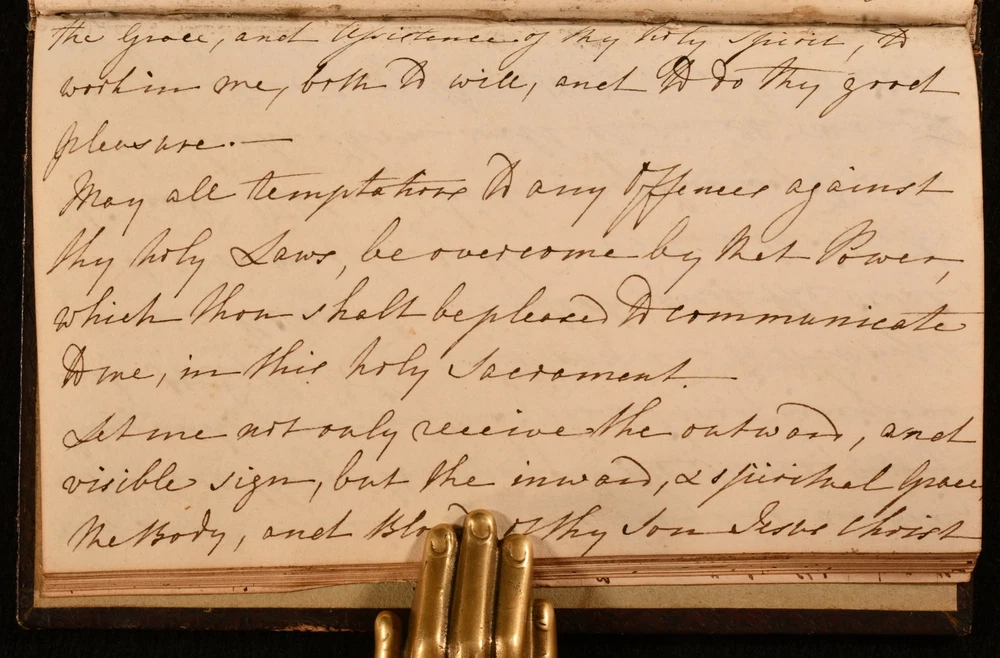 the Grace, and Assistence of thy holy Spirit, to
work in me, both to will, and to do thy good
pleasure.—
May all temptations to any Offences against
thy holy Laws, be overcome by that Power,
which thou shalt be pleased to communicate
to me, in this holy Sacrament.—
Let me not only receive the outward, and
visible sign, but the inward, & spiritual Grace
the Body, and Blood of thy Son Jesus Christ